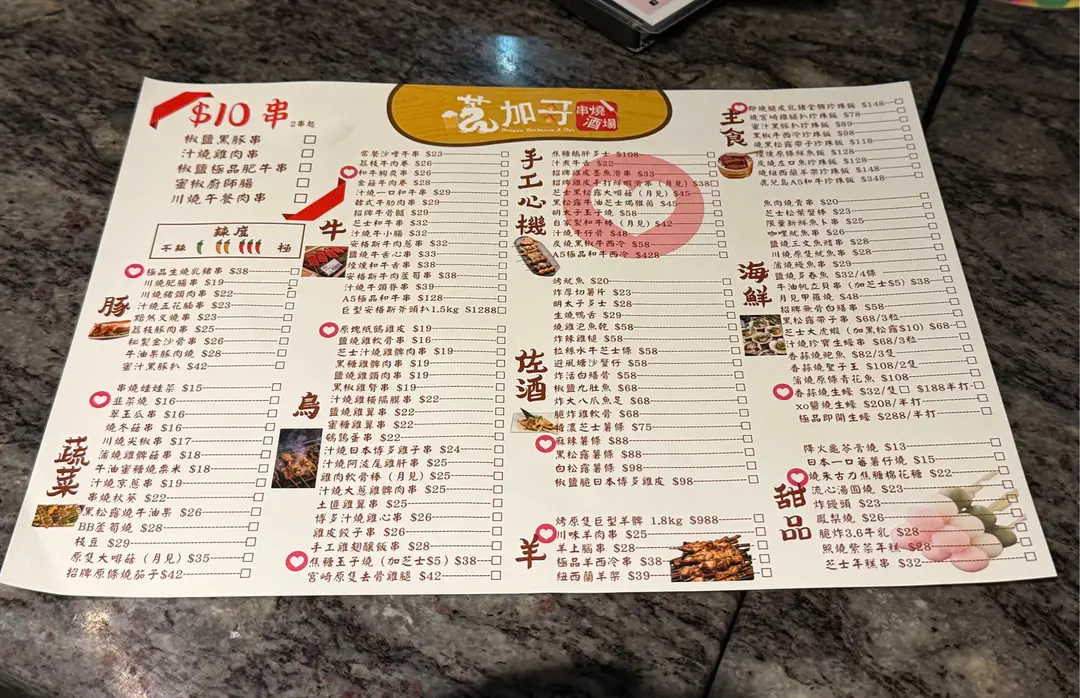 $10 串
2串起
椒鹽黑豚串
汁燒雞肉串
椒鹽極品肥牛串
蜜椒廚師腸
川燒午餐肉串
辣度
不辣
極
豚
極品生燒乳豬串 $38
川燒肥腸串 $19
川燒豬頸肉串 $22
汁燒五花腩串 $23
黯然叉燒串 $23
荔枝豚肉串 $25
秘製金沙骨串 $26
牛油果豚肉燒 $28
蜜汁黑豚扒 $32
蔬菜
串燒娃娃菜 $15
韭菜燒 $16
翠玉瓜串 $16
燒冬菇串 $16
川燒尖椒串 $17
蒲燒雞髀菇串 $18
牛油蜜糖燒粟米 $18
汁燒京蔥串 $19
串燒秋葵 $22
黑松露燒牛油果 $26
BB蘆筍燒 $28
枝豆 $29
原隻大啡菇（月見）$35
招牌原條燒茄子$42
加子
串燒酒場
牛
常餐沙嗲牛串 $23
荔枝牛肉卷 $28
和牛胸腐串 $26
金菇牛肉卷 $28
汁燒一口和牛串 $29
韓式牛肋肉串 $29
招牌牛骨髓 $29
芝士和牛串 $32
汁燒牛小腸 $32
安格斯牛肉蔥串 $32
鹽燒牛舌心串 $33
煙燻和牛舌串 $38
安格斯牛肉蘆筍串 $38
汁燒牛頸脊串 $39
A5極品和牛串 $128
巨型安格斯斧頭扒1.5kg $1288
鳥
原塊紙鶴雞皮 $19
鹽燒雞軟骨串 $16
芝士汁燒雞髀肉串 $19
黑糖雞髀肉串 $19
鹽燒雞頸肉串 $19
黑椒雞腎串 $19
汁燒雞橫隔膜串 $22
鹽燒雞翼串 $22
蜜糖雞翼串 $22
鵪鶉蛋串 $22
汁燒日本博多雞子串 $24
汁燒阿波尾雞肝串 $25
雞肉軟骨棒（月見）$25
汁燒大蔥雞髀肉串 $25
土匪雞翼串 $25
博多汁燒雞心串 $26
雞皮餃子串 $26
手工雞翅釀飯串 $28
焦糖玉子燒（加芝士$5）$38
宮崎原隻去骨雞腿 $42
手工心機
焦糖鵝肝多士 $108
汁煮牛舌 $22
招牌雞皮墨魚滑串 $33
招牌雞皮手打鮮蝦滑串（月見）$38
芝士黑松露大啡菇（月見）$45
黑松露牛油芝士焗雜菌 $45
明太子玉子燒 $58
自家製和牛棒（月見）$42
汁燒牛仔骨 $48
炭燒黑椒牛西冷 $58
A5極品和牛西冷 $428
佐酒
烤魷魚 $20
炸厚切薯片 $23
明太子多士 $28
生燒鴨舌 $29
燒雞泡魚乾 $58
炸辣雞槌 $58
拉絲水牛芝士條 $58
避風塘沙蟹仔 $58
炸活白鱔骨 $58
椒鹽九肚魚 $68
炸大八爪魚足 $68
脆炸雞軟骨 $68
特濃芝士薯條 $75
麻辣薯條 $88
黑松露薯條 $88
白松露薯條 $98
椒鹽脆日本博多雞皮 $98
羊
烤原隻巨型羊髀 1.8kg $988
川味羊肉串 $25
羊上腦串 $28
極品羊西冷串 $38
紐西蘭羊架 $39
主食
即燒脆皮乳豬全髀珍珠飯 $148
燒宮崎雞腿扒珍珠飯 $78
蜜汁黑豚扒珍珠飯 $89
黑椒牛西冷珍珠飯 $98
燒黑松露帶子珍珠飯 $118
煙燻原條鮮魚飯 $128
炭燒左口魚珍珠飯 $128
燒紐西蘭羊架珍珠飯 $148
鹿兒島A5和牛珍珠飯 $348
海鮮
魚肉燒賣串 $20
芝士松葉蟹棒 $23
限量新鮮魚卜串 $25
咖哩魷魚串 $26
鹽燒三文魚鰭串 $28
川燒原隻魷魚串 $28
蒲燒鰻魚串 $29
鹽燒多春魚 $32/4條
牛油帆立貝串（加芝士$5）$38
月見甲羅燒 $48
招牌無骨白鱔串 $58
黑松露帶子串 $68/3粒
芝士大虎蝦（加黑松露$10）$68
汁燒珍寶生蠔串 $68/3粒
香蒜燒鮑魚 $82/3隻
香蒜燒聖子王 $108/2隻
蒲燒原條青花魚 $108
香蒜燒生蠔 $32/隻 $188半打
xo醬燒生蠔 $208/半打
極品即開生蠔 $288/半打
甜品
降火龜苓膏燒 $13
日本一口蕃薯仔燒 $15
燒朱古力焦糖棉花糖 $22
流心湯圓燒 $23
炸饅頭 $23
鳳梨燒 $26
脆炸3.6牛乳 $28
照燒紫菜年糕 $28
芝士年糕串 $32